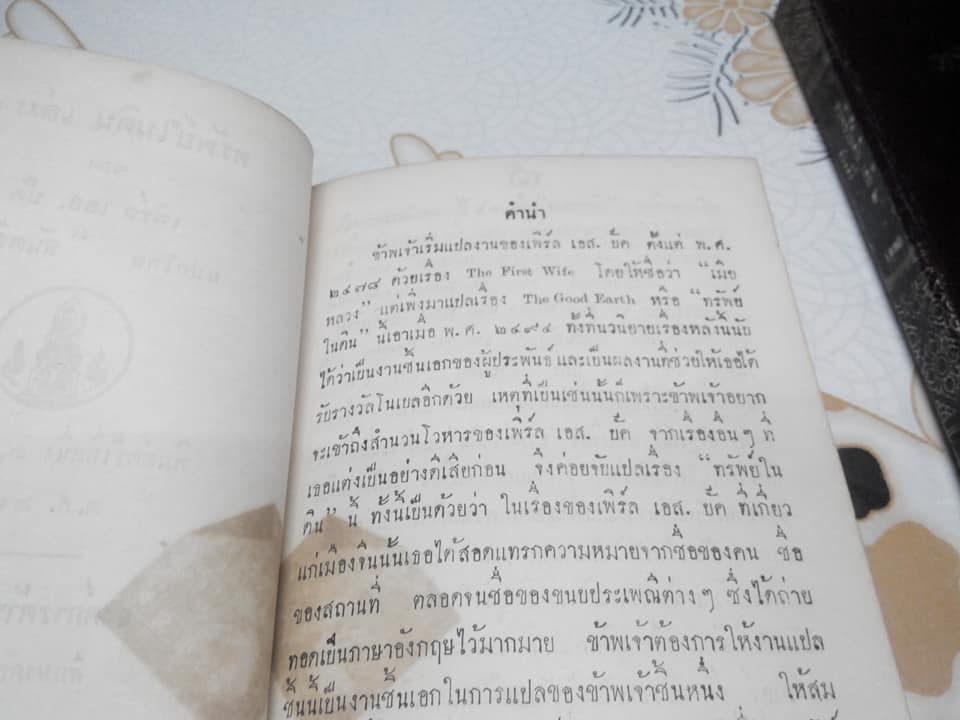 คำนำ
ข้าพเจ้าเริ่มแปลงานของเพิร์ล เอส. บั๊ค ตั้งแต่ พ.ศ.
๒๔๗๘ ด้วยเรื่อง The First Wife โดยให้ชื่อว่า “เมีย
หลวง” แต่เพิ่งมาแปลเรื่อง The Good Earth หรือ “ทรัพย์
ในดิน” นี้เอาเมื่อ พ.ศ. ๒๔๙๔ ทั้งที่นวนิยายเรื่องหลังนี้นับ
ได้ว่าเป็นงานชั้นเอกของผู้ประพันธ์ และเป็นผลงานที่ช่วยให้เธอได้
รับรางวัลโนเบลอีกด้วย เหตุที่เป็นเช่นนั้นก็เพราะข้าพเจ้าอยาก
จะเข้าถึงสำนวนโวหารของเพิร์ล เอส. บั๊ค จากเรื่องอื่นๆ ที่
เธอแต่งเป็นอย่างดีเสียก่อน จึงค่อยจับแปลเรื่อง “ทรัพย์ใน
ดิน” นี้ ทั้งนี้เป็นด้วยว่า ในเรื่องของเพิร์ล เอส. บั๊ค ที่เกี่ยว
แก่เมืองจีนนั้นเธอได้สอดแทรกความหมายจากชื่อของคน ชื่อ
ของสถานที่ ตลอดจนชื่อของขนบประเพณีต่างๆ ซึ่งได้ถ่าย
ทอดเป็นภาษาอังกฤษไว้มากมาย ข้าพเจ้าต้องการให้งานแปล
ชิ้นนี้เป็นงานชั้นเอกในการแปลของข้าพเจ้าชิ้นหนึ่ง ให้สม